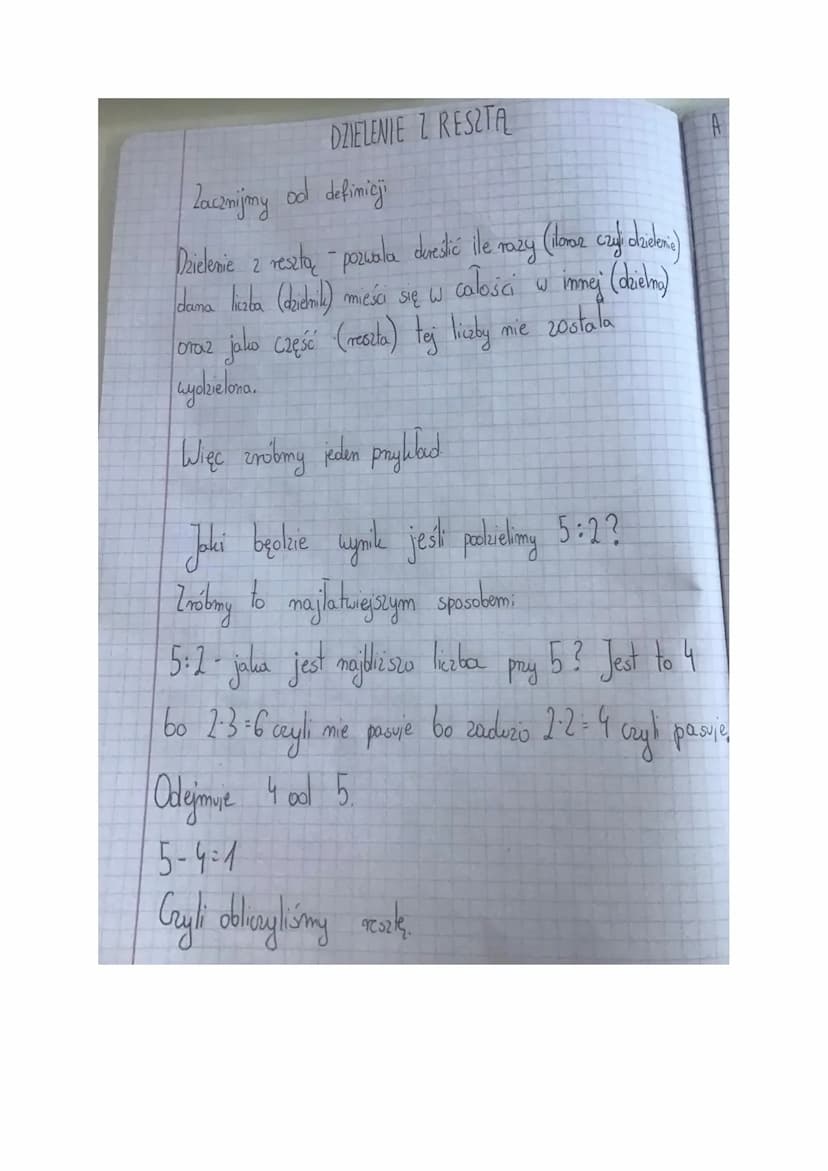 DZIELENIE Z RESZTĄ
A
Zacznijmy od definicji
Dzielenie z resztą - pozwala określić ile razy (iloraz czyli dzielenie)
dana liczba (dzielnik) mieści się w całości w innej (dzielna)
oraz jako część (reszta) tej liczby nie została
wydzielona.
Więc zróbmy jeden przykład
Jaki będzie wynik jeśli podzielimy 5:2?
Zróbmy to najłatwiejszym sposobem:
5:2 - jaka jest najbliższa liczba przy 5? Jest to 4
bo 2·3=6 czyli nie pasuje bo zadużo 2·2=4 czyli pasuje.
Odejmuje 4 od 5.
5-4=1
Czyli obliczyliśmy resztę.